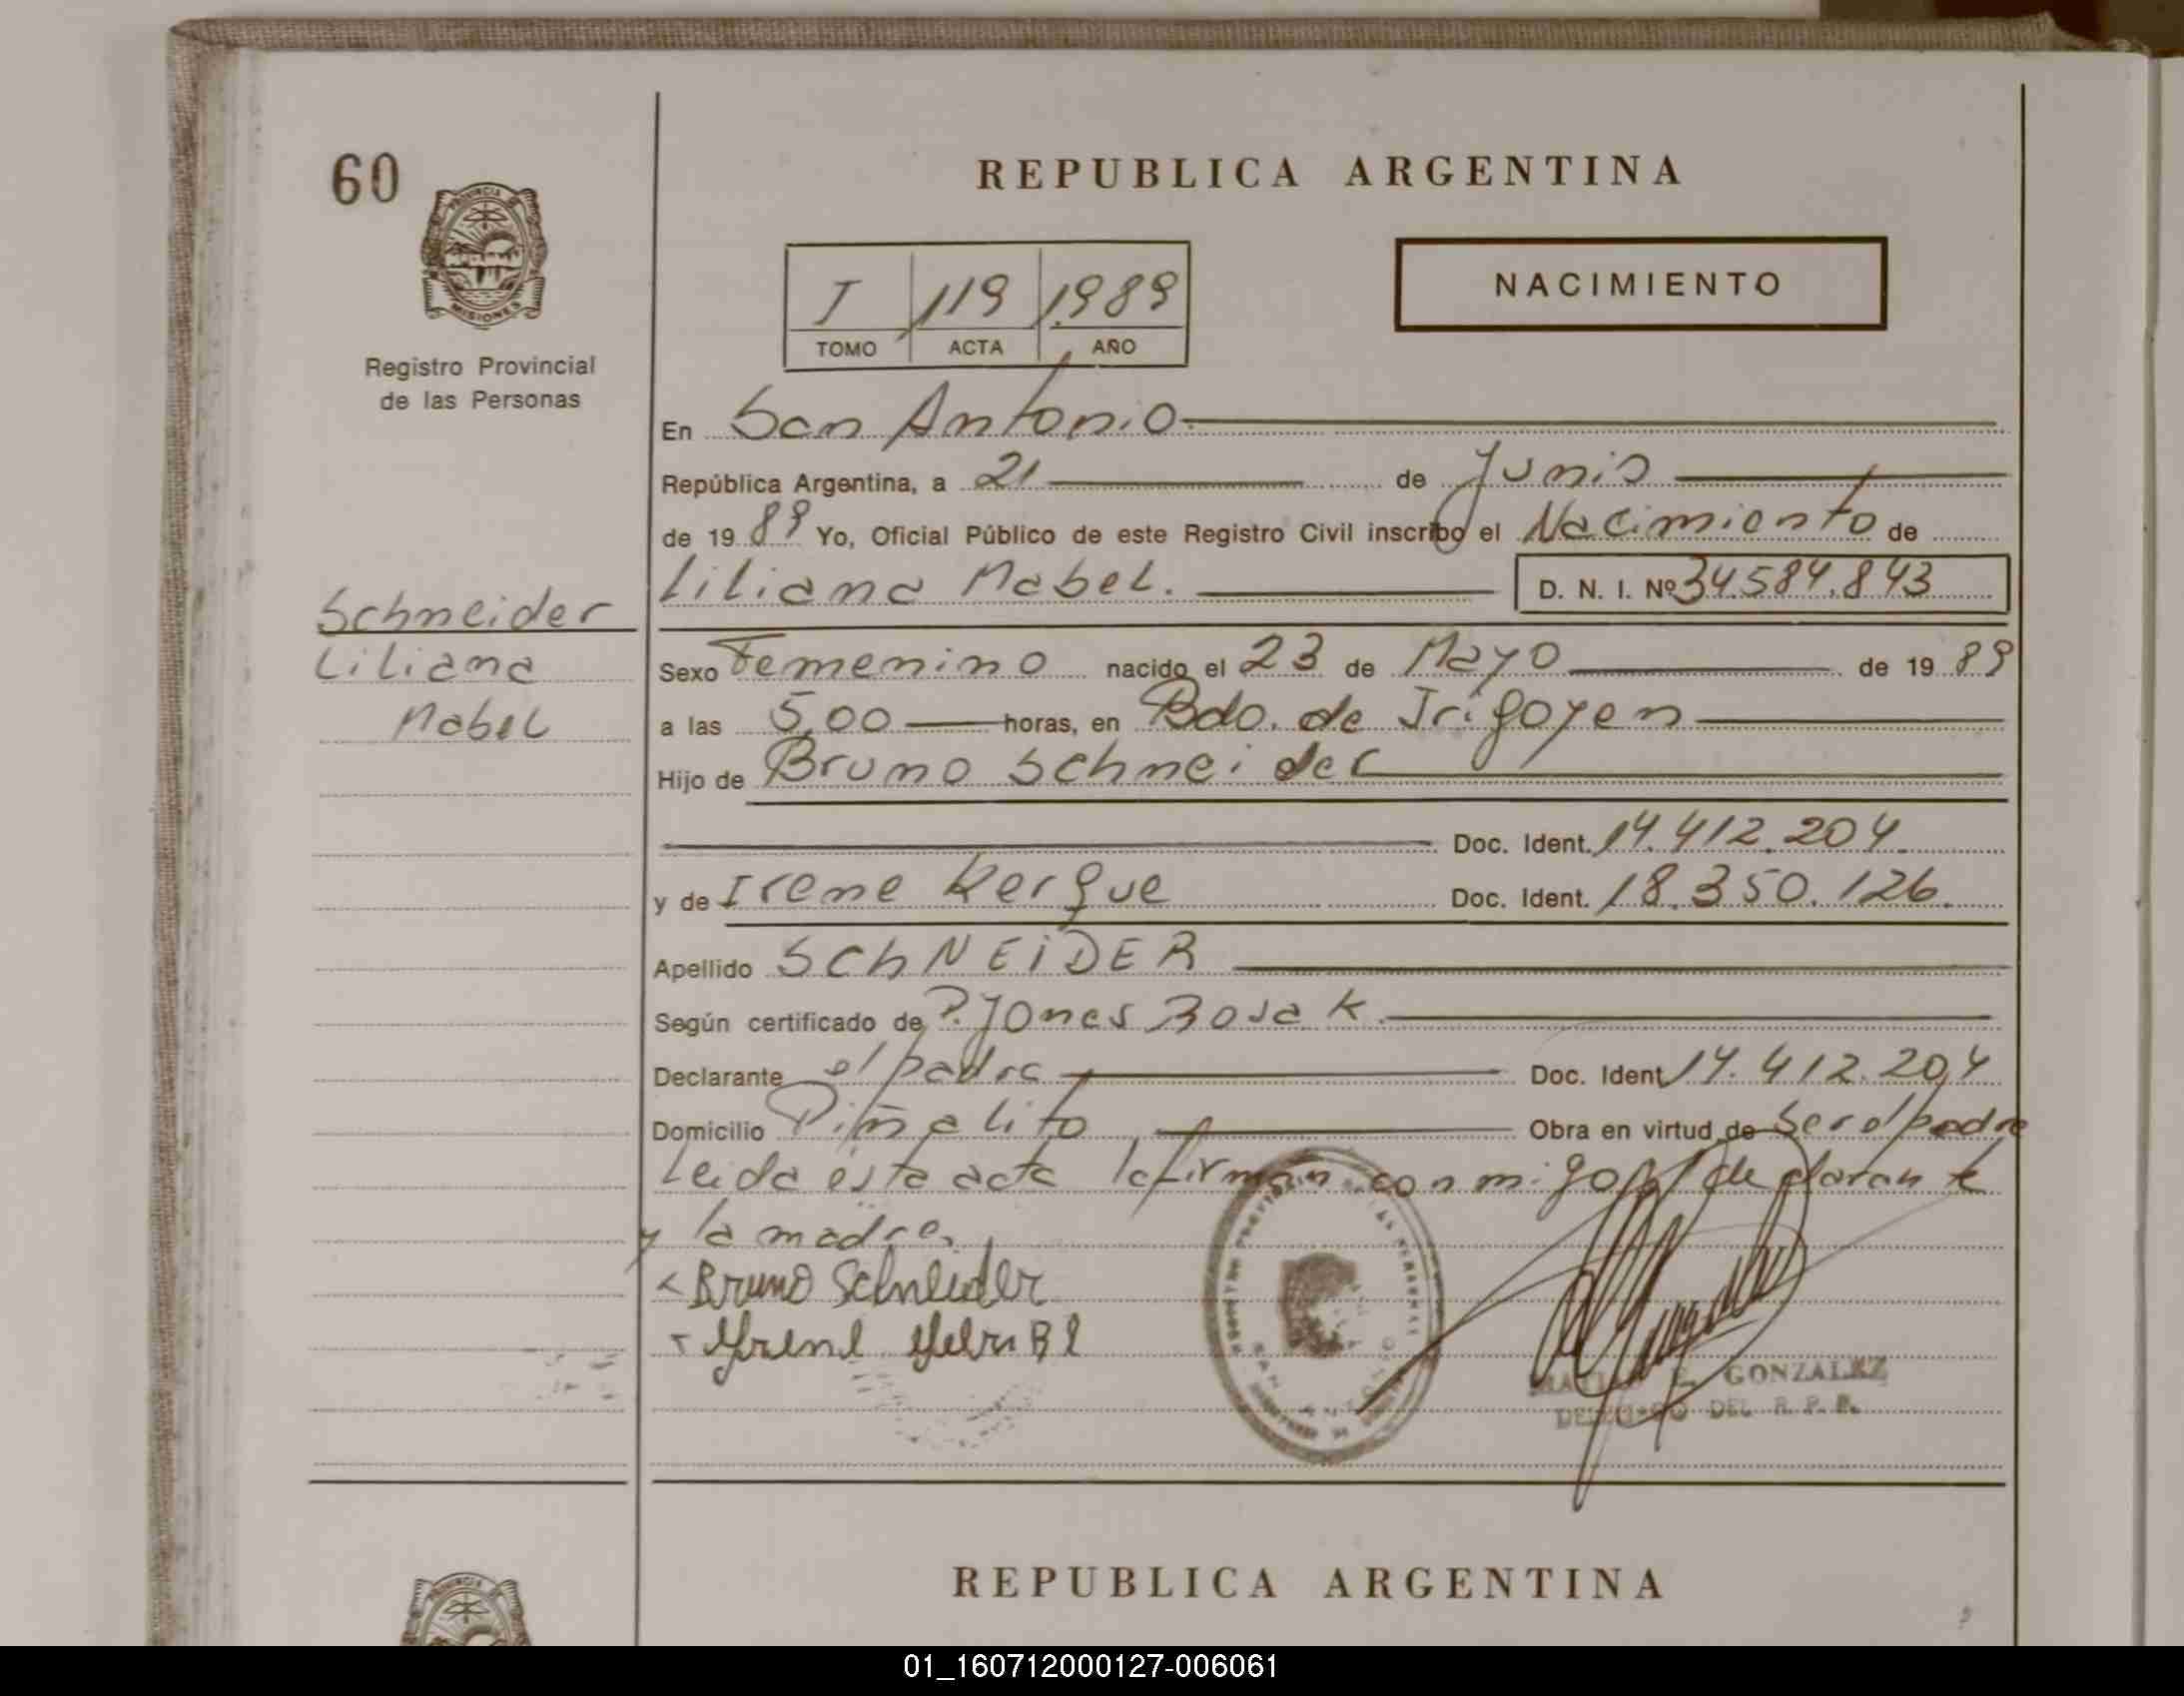 60
REPUBLICA ARGENTINA
PROVINCIA DE
MISIONES
Registro Provincial
de las Personas
NACIMIENTO
I 119 1989
TOMO ACTA AÑO
En San Antonio
República Argentina, a 21 de Junio
de 1989 Yo, Oficial Público de este Registro Civil inscribo el Nacimiento de
Liliana Mabel. D. N. I. Nº 34.584.843
Schneider
Liliana
Mabel
Sexo Femenino nacido el 23 de Mayo de 1989
a las 5,00 horas, en Bdo. de Irigoyen
Hijo de Bruno Schneider
Doc. Ident. 14.412.204
y de Irene Kergue Doc. Ident. 18.350.126.
Apellido SCHNEIDER
Según certificado de P. Jones Bosak.
Declarante el padre Doc. Ident 14.412.204
Domicilio Piñalito Obra en virtud de Ser el padre
Leida esta acta la firman conmigo el declarante
y la madre.
Bruno Schneider
GONZALEZ
DEL R. P. P.
REPUBLICA ARGENTINA
PROVINCIA
01_160712000127-006061